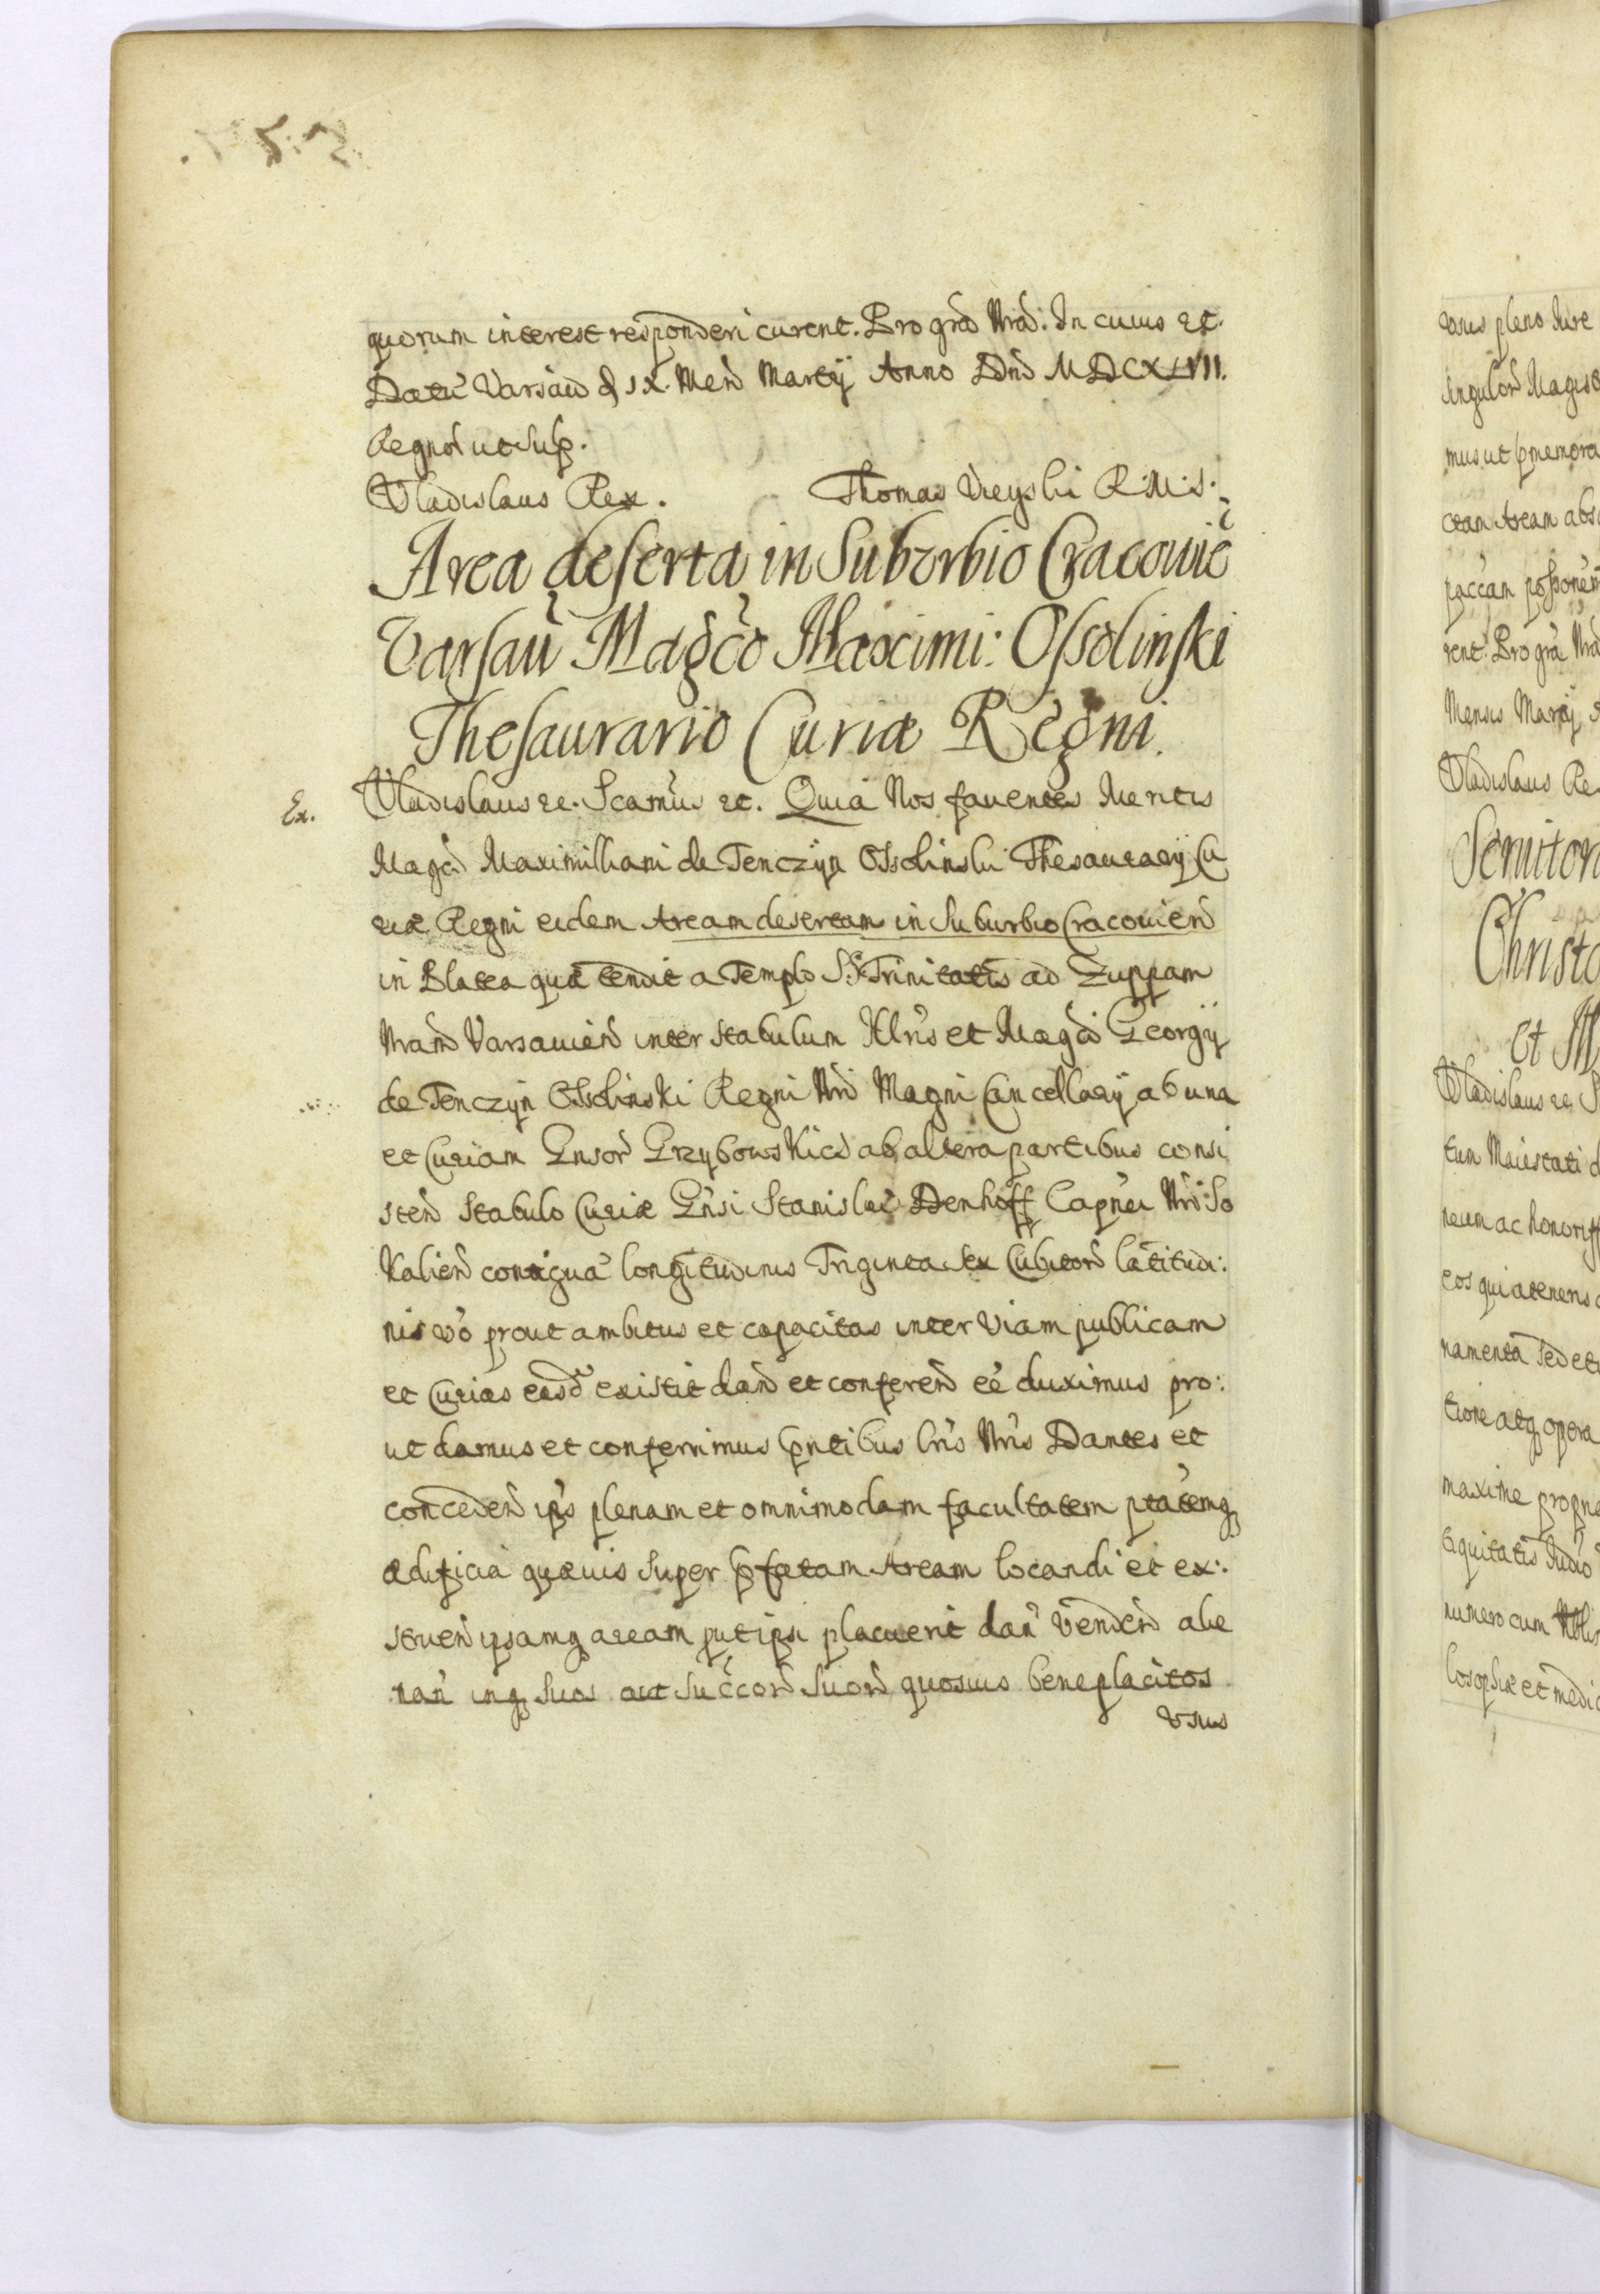 quorum interest responderi curent. Pro gra Nra: In cuius et.
Datu Varsaw d IX Mens Martij Anno Dni MDCXLVII.
Regnor ut sup.
Vladislaus Rex. Thomas Uieyski R:M:S:
Area deserta in Suburbio Cracouie
Varsau Magco Maximi: Ossolinski
Thesaurario Curiæ Regni.
Ex. Vladislaus etc. Scamus etc. Quia Nos fauentes Meritis
Magci Maximilliani de Tenczyn Ossolinski Thesaurarij Cu
riæ Regni eidem Aream desertam in Suburbio Cracouien
in Platea qua tendit a Templo SS: Trinitatis ad Zuppam
Nram Varsauien inter stabulum Illris et Magci Georgij
de Tenczyn Ossolinski Regni Nri Magni Cancellarij ab una
et Curiam Gnsor Grzybowskich ab altera partibus consi
sten Stabulo Curiæ Gnsi Stanislai Denhoff Capnei Nri So
kalien contigua longitudinis Triginta sex Cubitor latitudi:
nis vo prout ambitus et capacitas inter Viam publicam
et Curias easd existit dan et conferen ee duximus pro:
ut damus et conferrimus pntibus lris Nris Dantes et
conceden ips plenam et omnimodam facultatem ptatemq
ædificia quæuis super pfatam Aream locandi et ex:
struen ipsamq aream put ipsi placuerit dan venden alie
nan inq suos aut succor suor quosuis beneplacitos
vsus
vsus pleno Iure
singulor Magis
mus ut pmemora
ctam Aream abs
rent. Pro gra Nra
Mensis Martij
Vladislaus Re
Seruitor
Christo
et M
Vladislaus etc S
tum Maiestati d
neum ac honorif
eos qui a teneris
namenta sed et
tione atq opera
maxime
numero cum Nobis
losophiæ et medic